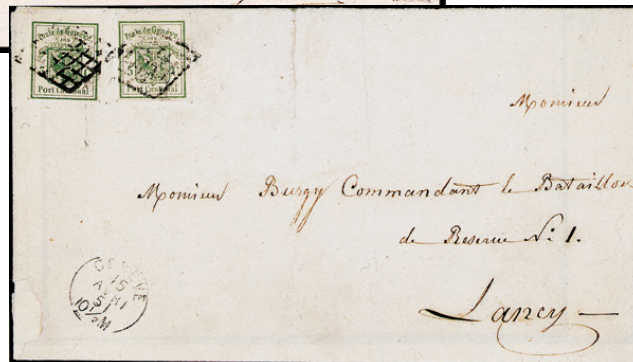 Poste de Genève
Port Cantonal
Poste de Genève
Port Cantonal
Monsieur
Monsieur Burgy Commandant le Bataillon
de Reserve No. 1.
Lancy —
GENEVE
15
AVRI
51
10½M